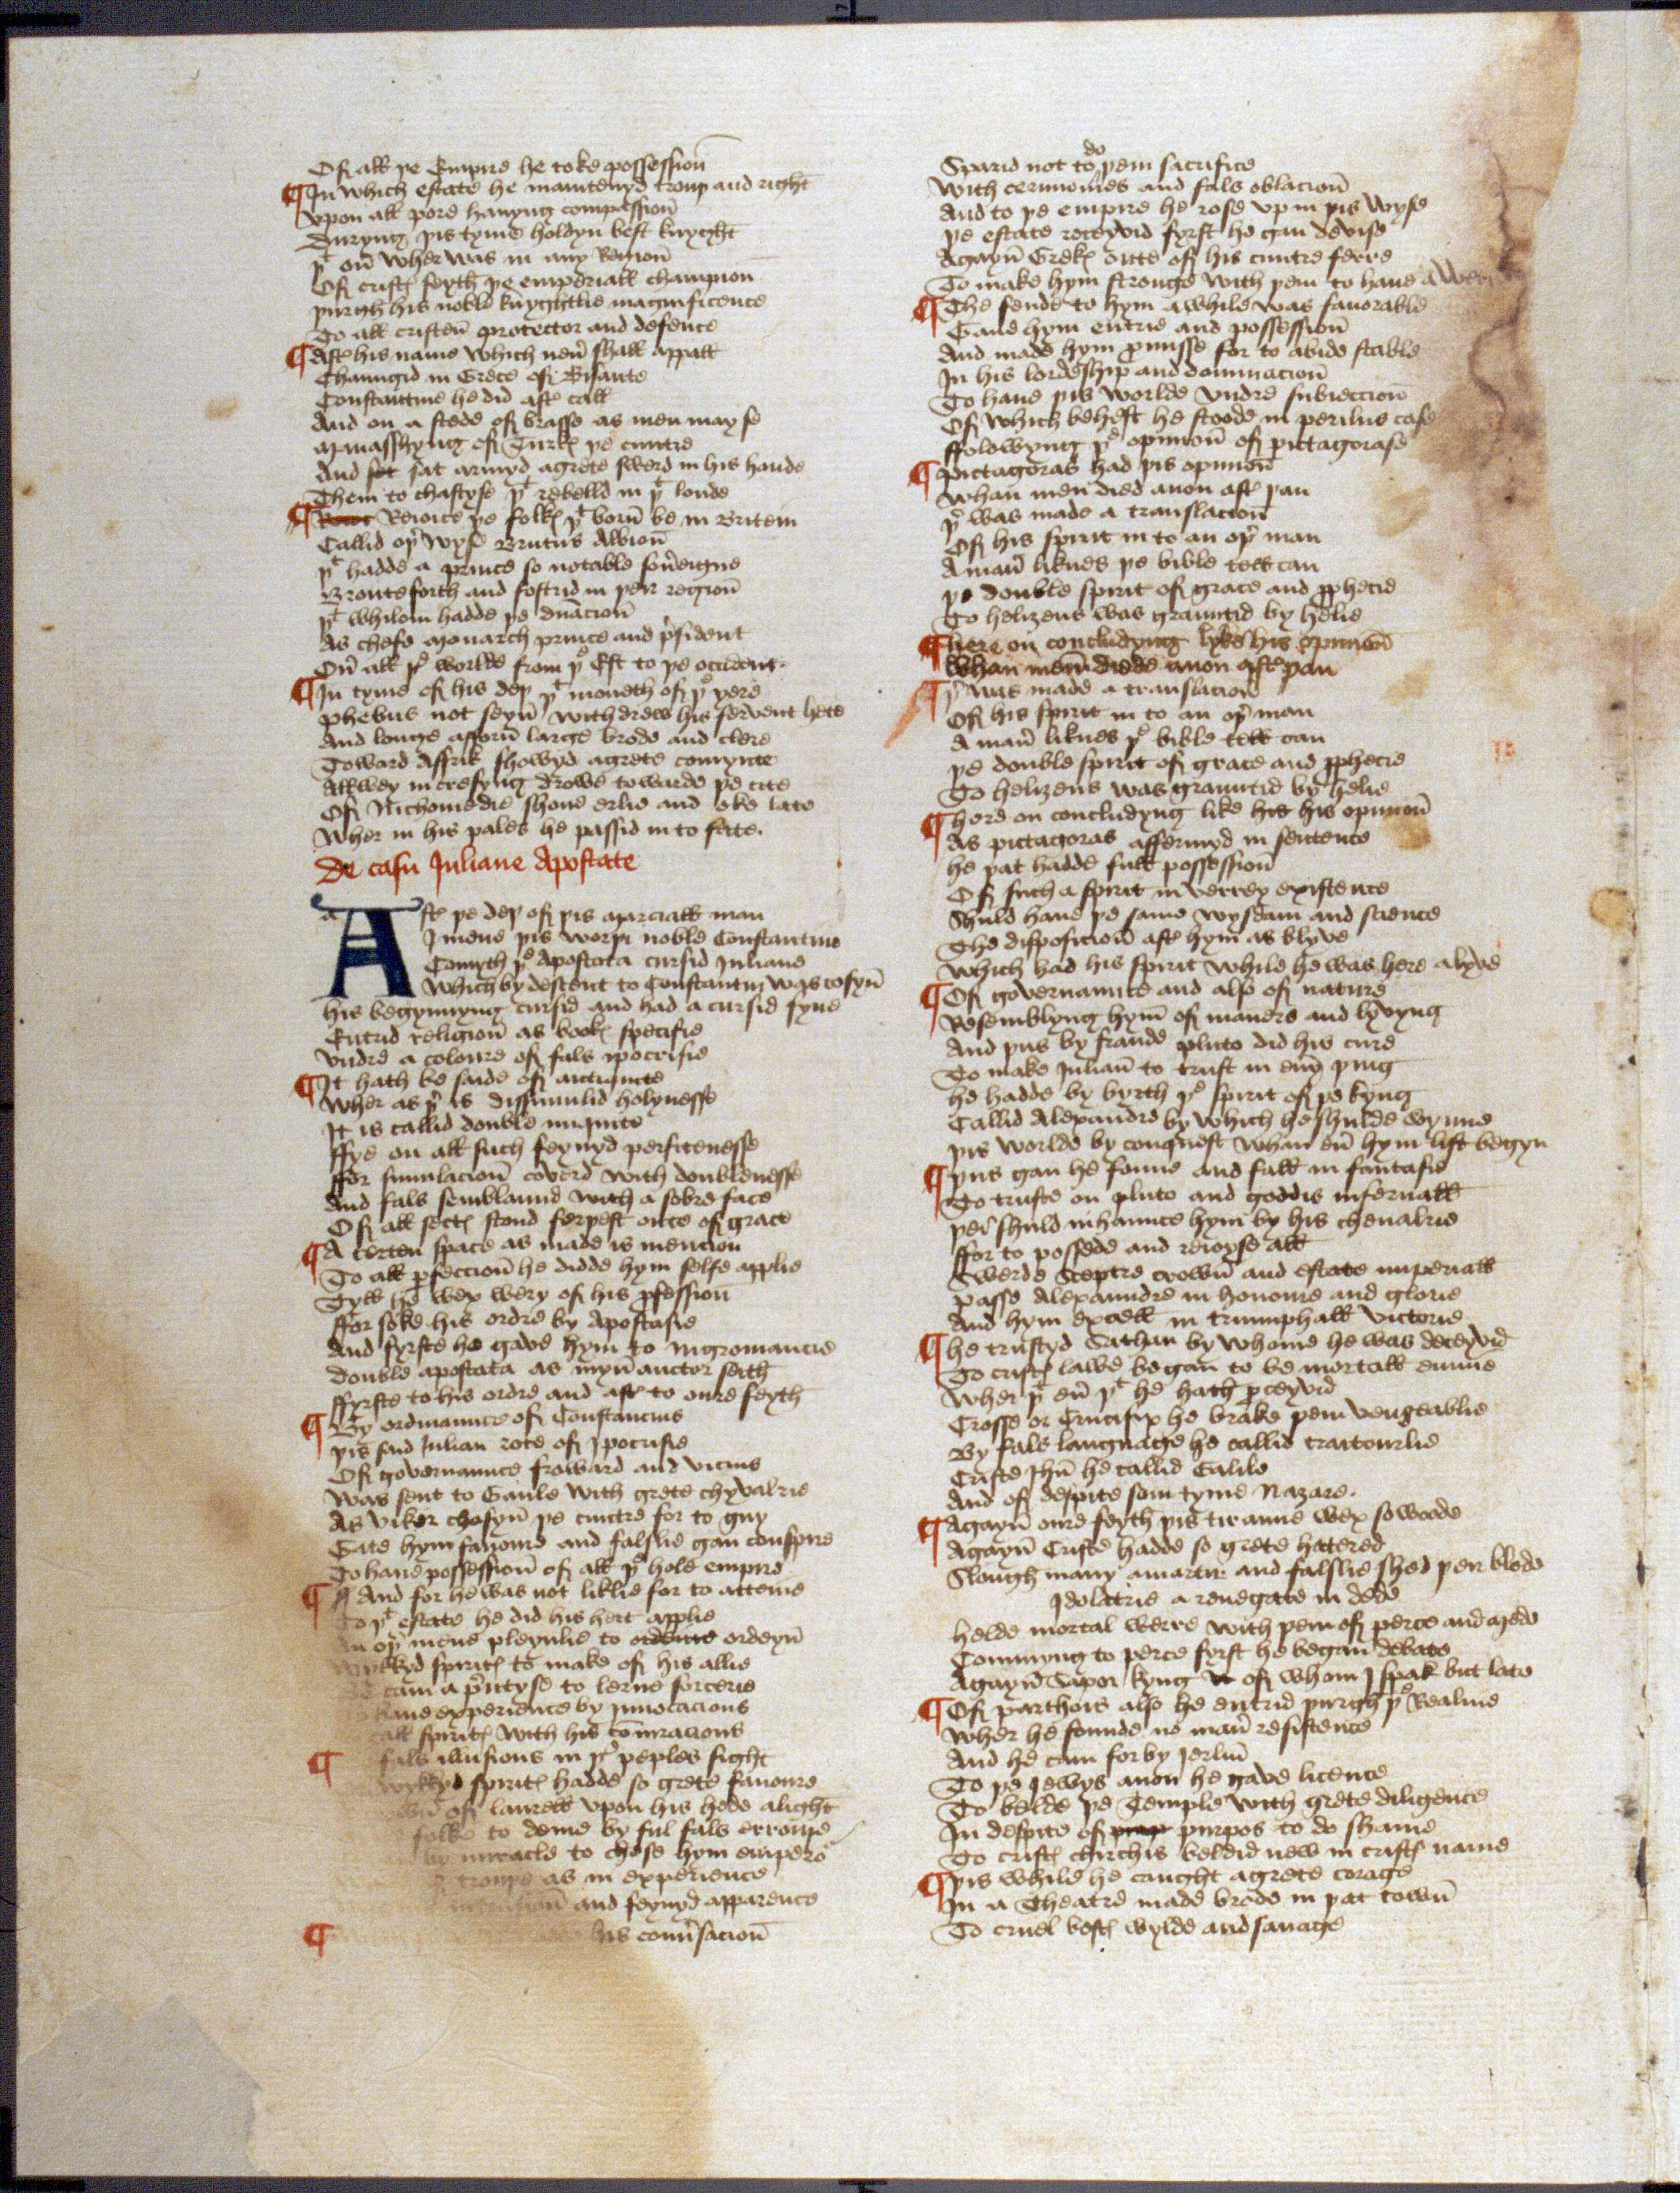 Of all þe Empire he toke possessioun̄
¶ In which estate he mainteynyd trouþ and right
Vpon all pore hauyng compassioun̄
Duryng þis tyme holdyn best knyght
þᵗ on̄ wher was in any Regioun̄
Of cristꝭ feyth þe emperiall champioun
þurgh his noble knyghtlie magnificence
To all cristen̄ protector and defence
¶ Aftꝭ his name which neu̾ shall appall
Chaungid in Grece of Bisante
Constantine he did aftꝭ call
And on a stede of brasse as men may se
Manasshyng of Turkꝭ þe cuntre
And sat armyd a grete swerd in his hande
Them to chastyse þᵗ rebelld in þᵗ londe
¶ Reioice þe folkꝭ þᵗ born̄ be in Britein
Callid oþ̾ wyse Brutus Albion̄
þᵗ hadde a prince so notable sou̾eigne
Broute forth and fostrid in þeir region̄
þᵗ whilom hadde þe dn̄acion̄
As chefe Monarch prince and p̾sident
Ou̾ all þᵉ worlde from þᵉ Est to þe occident.
¶ In tyme of his deþ þᵗ moneth of þᵉ yere
Phebus not seyn̄ withdrew his fervent hete
And longe afforn̄ large brode and clere
Toward Affrik showyd a grete comynte
Allwey incresyng drowe towarde þe cite
Of Nichomedie shone erlie and eke late
Wher in his pales he passid in to fate.
De casu Juliane Apostate
Aftꝭ þe deþ of þis Marciall man
I mene þis worþi noble Constantine
Comyth þᵉ Apostata cursid Juliane
Which by descent to Constantin was cosyn̄
His begynnyng cursid and had a cursid fyne
Entrid religion̄ as bookꝭ specifie
Vndre a coloure of fals ipocrisie
¶ It hath be saide of auctiquite
Wher as þ̾ is dissimulid holynesse
It is callid double iniquite
ffye on all such feynyd perfitenesse
ffor simulacion̄ coverd with doublenesse
And fals semblaund with a sobre face
Of all sectꝭ stond ferþest oute of grace
¶ A certen space as made is mencion
To all ꝑfeccion̄ he didde hym selfe applie
Tyll he wex wery of his ꝓfession̄
ffor soke his ordre by Apostasie
And fyrste he gave hym to nigromancie
Double apostata as myn̄ auctor seith
ffyrste to his ordre and aftꝭ to oure feyth
¶ By ordinaunce of Constancius
þis said Julian rote of Ipocrisie
Of governaunce froward and vicius
Was sent to Gaule with grete chyvalrie
As viker chosyn̄ þe cuntre for to guy
Gate hym favoure and falslie gan conspire
To have possession̄ of all þᵉ hole empire
¶ And for he was not liklie for to atteine
To þᵗ estate he did his hert applie
An oþ̾ mene pleynlie to ordeyn̄
wykkyd spiritꝭ to make of his allie
cam a p̾ntyse to lerne sorcerie
have experience by invocacions
call spiritꝭ with his coniuracions
¶ fals illusions in þᵉ peples sight
wykkyd spiritꝭ hadde so grete favoure
of laurell vpon his hede alight
folke to deme by ful fals erroure
by miracle to chese hym emperoʳ
trouþe as in experience
and feynyd apparence
¶ his conu̾sacion̄
Sparid not to do þem sacrifice
With cerimonies and fals oblacion̄
And to þe empire he rose vp in þis wyse
þe estate receyvid fyrst he gan devise
Agayn̄ Grekꝭ oute of his cuntre ferre
To make hym stronge with þem to have a werre
¶ The fende to hym a while was favorable
Gave hym entrie and possession̄
And made hym ꝓmisse for to abide stable
In his lordeship and dominacion̄
To have þis worlde vndre subieccion̄
Of which behest he stoode in perilus case
ffolowyng þᵉ opinion̄ of pictagorase
¶ Pictagoras had þis opinion̄
Whan men died anon aftꝭ þan
þ̾ was made a translacion̄
Of his spirit in to an oþ̾ man
A man̄ liknes þe bible tell can
þe double spirit of grace and ꝓphecie
To helizeus was grauntid by helie
¶ Here on concludyng lyke his opinion̄
Whan men̄ diede anon aftꝭ þan
¶ þ̾ was made a translacion̄
Of his spirit in to an oþ̾ man
A man̄ liknes þᵉ bible tell can
þe double spirit of grace and ꝓphecie
To helizeus was grauntid by helie
¶ Here on concludyng like his his opinion̄
As pictagoras affermyd in sentence
He þat hadde full possession̄
Of such a spirit in verrey existence
Shuld have þe same wysdam and science
The disposicion̄ aftꝭ hym as blyve
Which had his spirit while he was here alyve
¶ Of governaunce and also of nature
Resemblyng hym̄ of maners and lyvyng
And þus by fraude pluto did his cure
To make Julian̄ to trust in eu̾y þing
He hadde by byrth þᵉ spirit of þe kyng
Callid Alexandre by which he shulde wynne
þis worlde by conquest whan eu̾ hym list begyn
¶ þus gan he fonne and fall in fantasie
To truste on pluto and goddis infernall
þei shuld inhaunce hym by his chevalrie
ffor to possede and reioyse all
Swerde Sceptre crown̄ and estate imperiall
Passe Alexaundre in honoure and glorie
And hym excell in triumphall victorie
¶ He trustyd Sathan by whome he was deceyvid
To cristꝭ lawe began to be mortall enmie
Wher þ̾ eu̾ þᵗ he hath ꝑceyvid
Crosse or Crucifix he brake þem vengeablie
By fals language he callid traitourlie
Criste Jhū he callid Galile
And of despite som tyme Nazare.
¶ Agayn̄ oure feyth þis tiranne wex so woode
Agayn̄ Criste hadde so grete hatered
Slough many a marter and falslie shed þeir blode
Idolatrie a renegate in dede
Helde mortal werre with þem of perce and Mede
Commyng to perce fyrst he began debate
Agayn̄ Sapor kyng of whom I spak but late
¶ Of parthois also he entrid þurgh þᵉ Realme
Wher he founde no man̄ resistence
And he cam forby Jerlm̄
To þe Jewys anon he gave licence
To belde þe Temple with grete diligence
In despite of purpos to do shame
To cristꝭ chirchis beldid new in cristꝭ name
¶ þis while he caught a grete corage
In a Theatre made brode in þat town̄
To cruel bestꝭ wylde and savage